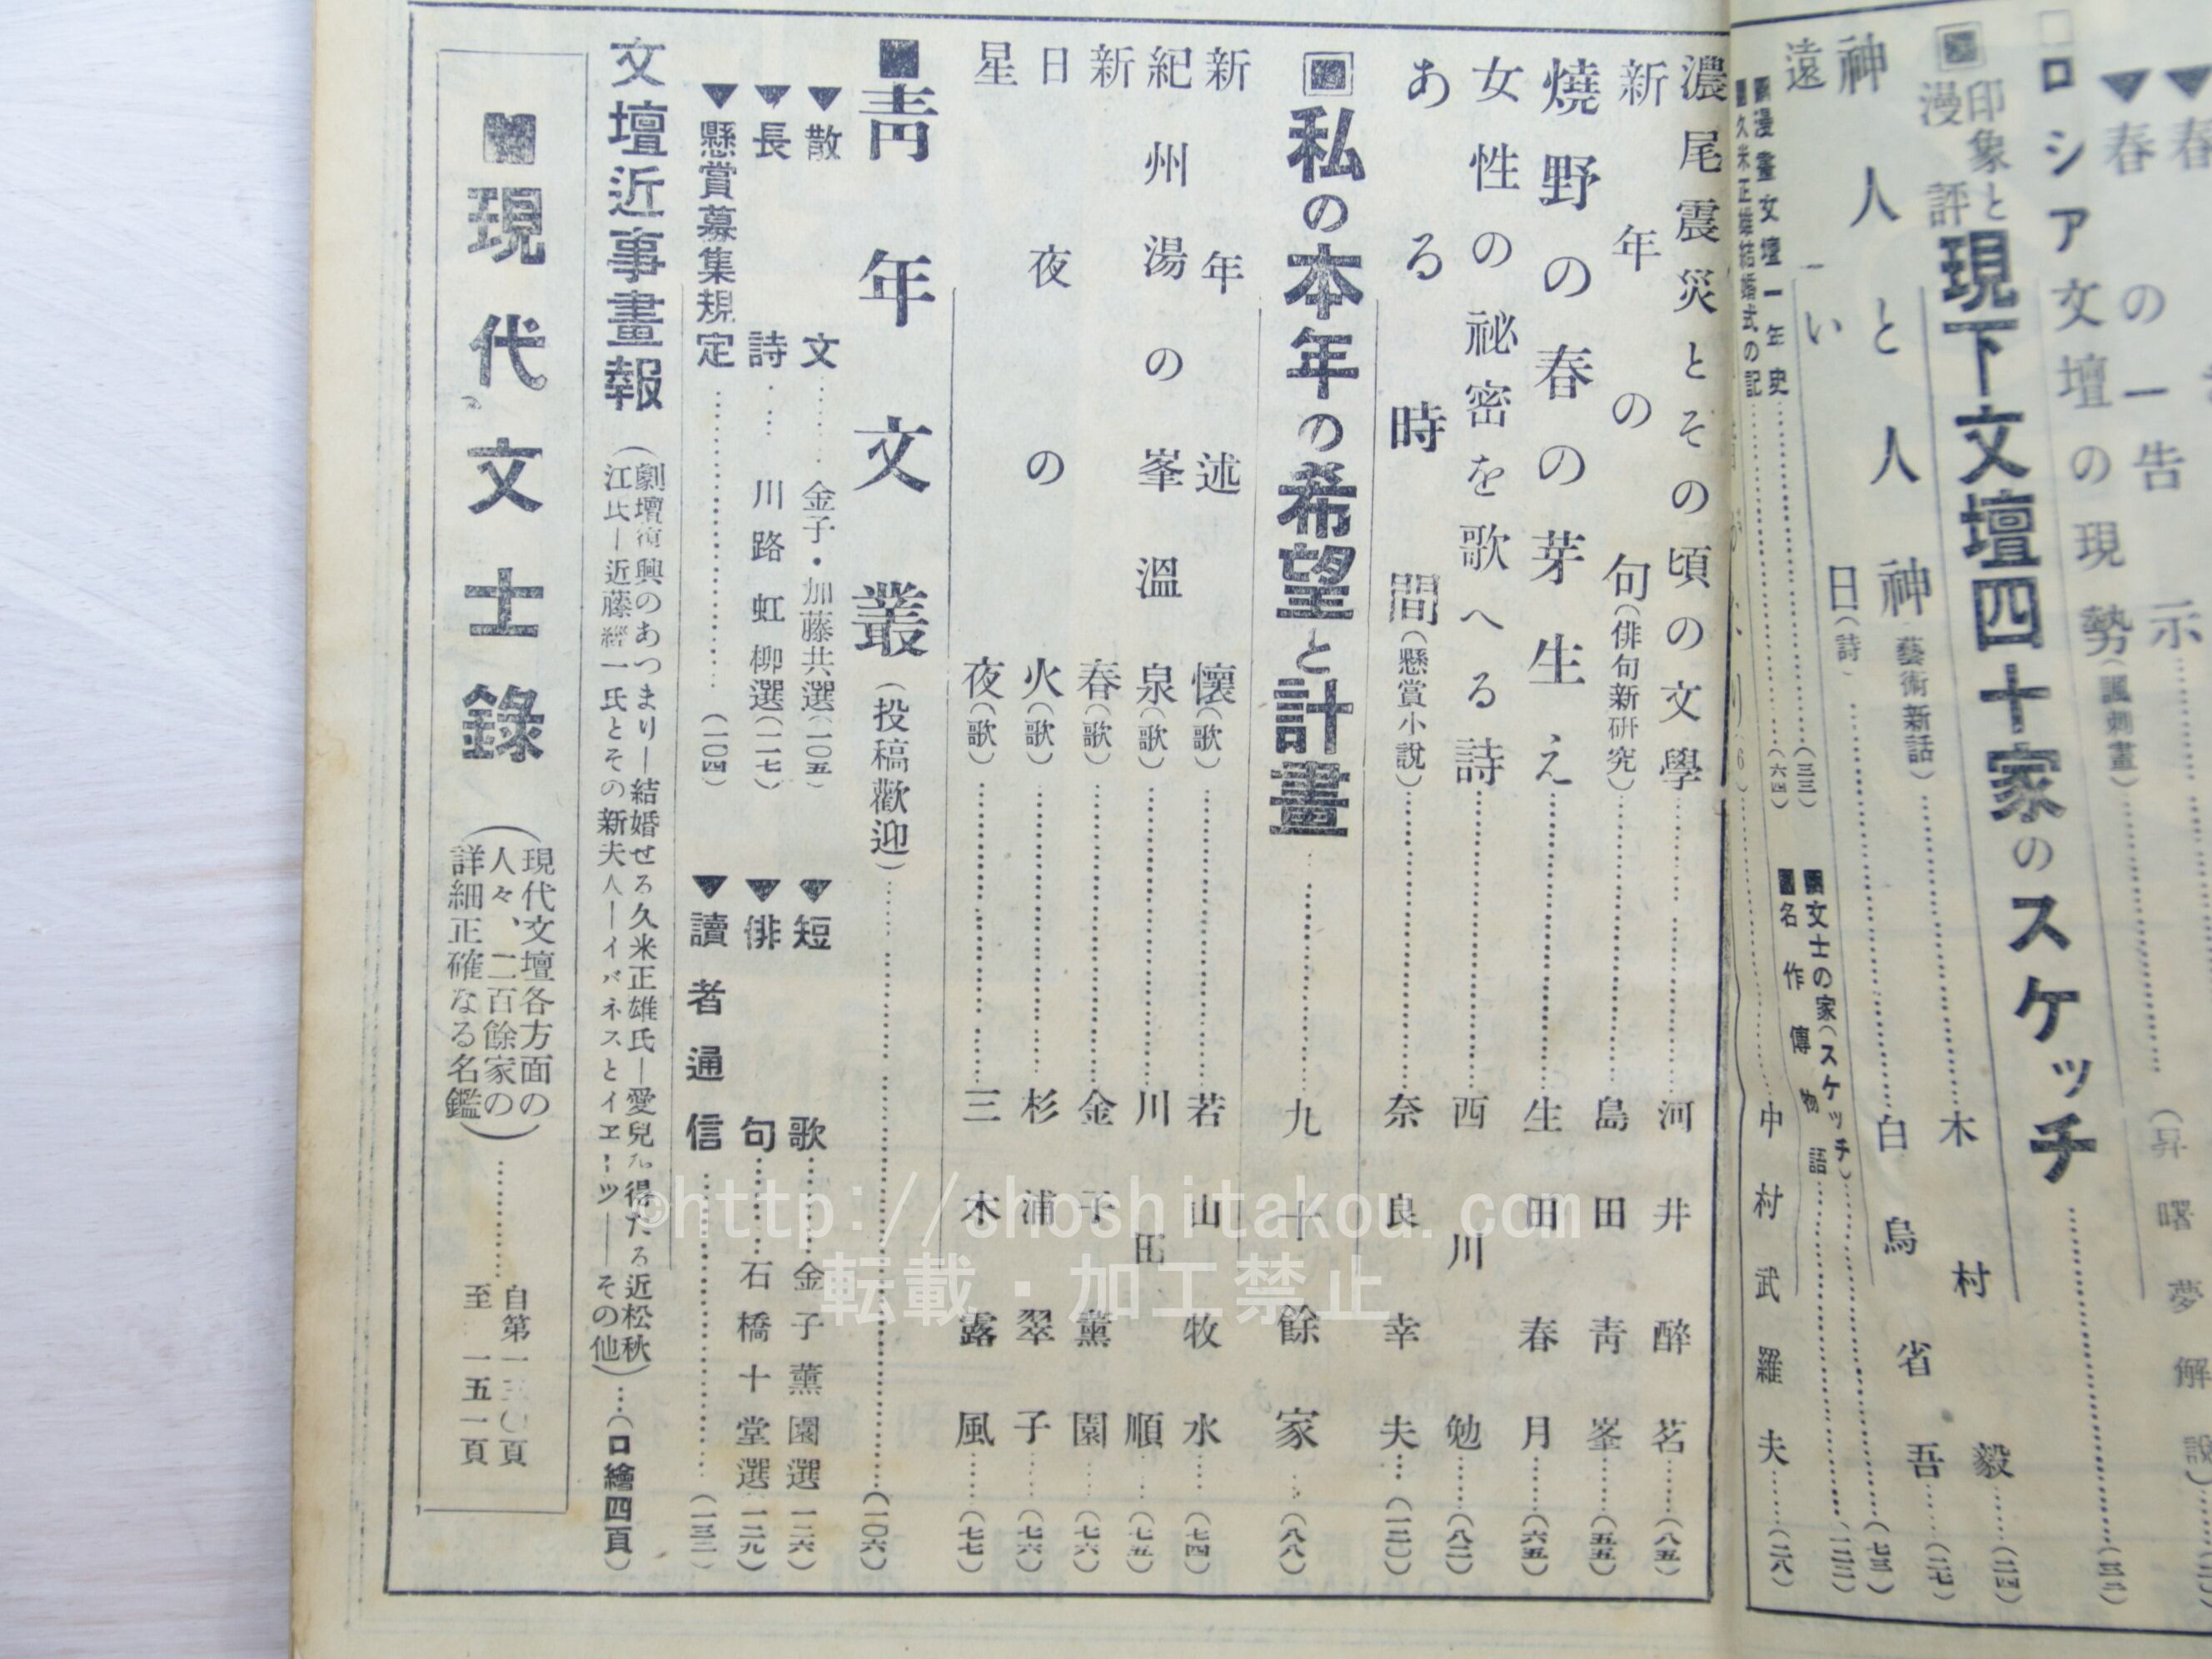 ロシア文壇の現勢(諷刺畫)
印象と漫評 現下文壇四十家のスケッチ
神人と人神(藝術新話)……木村毅……(二四)
遠い日(詩)……白鳥省吾……(二七)
漫畫文壇一年史……(三三)
久米正雄結婚式の記……(六四)
文士の家(スケッチ)……(七三)
名作傳物語
中村武羅夫……(二八)
濃尾震災とその頃の文學……河井醉茗……(八五)
新年の句(俳句新研究)……島田靑峯……(五五)
燒野の春の芽生え……生田春月……(六五)
女性の祕密を歌へる詩……西川勉……(八二)
ある時間(懸賞小說)……奈良幸夫……(一二一)
私の本年の希望と計畫……九十餘家……(八八)
新年述懷(歌)……若山牧水……(七四)
紀州湯の峯溫泉(歌)……川田順……(七五)
新春(歌)……金子薰園……(七六)
日夜の火(歌)……杉浦翠子……(七六)
星夜(歌)……三木露風……(七七)
■靑年文叢(投稿歡迎)……(一〇六)
▼散文……金子・加藤共選(一〇五)
▼短歌……金子薰園選(一二六)
▼長詩……川路虹柳選(一一七)
▼俳句……石橋十堂選(一二九)
▼懸賞募集規定……(一〇四)
▼讀者通信……(一三二)
文壇近事畫報
(劇壇復興のあつまり―結婚せる久米正雄氏―愛兒を得たる近松秋
江氏―近藤經一氏とその新夫人―イバネスとイエーツ――その他)…(口繪四頁)
■現代文士錄
(現代文壇各方面の
人々、二百餘家の
詳細正確なる名鑑)
自第一三〇頁
至一五一頁
©http://shoshitakou.com
転載・加工禁止